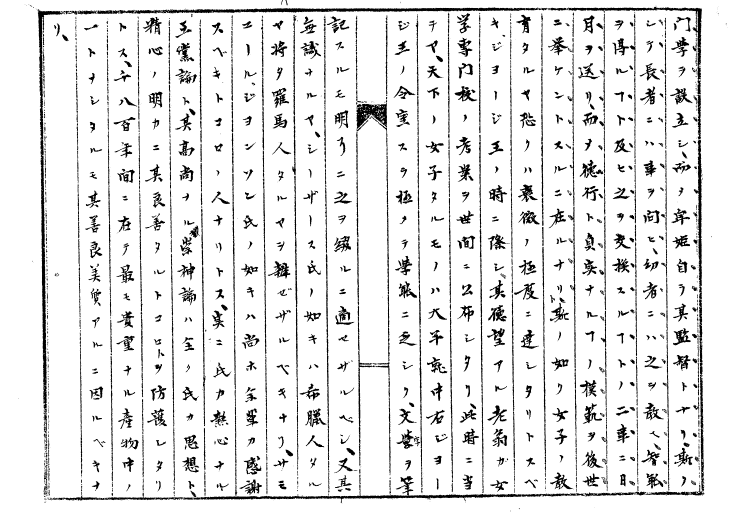 門学ヲ設立シ、而メ年姫自ラ其監督トナリ、斯ノ
如ク長者ニハ事ヲ問ヒ、幼者ニハ之ヲ教ヘ、智戝
ヲ得ルヿト及ヒ之ヲ交換スルヿトノ二事ニ日
月ヲ送リ、而メ徳行ト貞実ナルヿノ模範ヲ後世
ニ挙ケントスルニ在ルナリ、斯ノ如ク女子ノ教
育タルヤ恐クハ衰微ノ極度ニ達シタリトスベ
キジヨージ王ノ時ニ際シ、其徳望アル老翁ガ女
学専門校ノ考案ヲ世間ニ公布シタリ、此時ニ当
テヤ、天下ノ女子タルモノハ大平就中右ジヨー
ジ王ノ令室スラ極メテ学識ニ乏シク、文学ヲ筆
記スルモ明了ニ之ヲ綴ルニ適セザルベシ、又其
無識ナルヤ、シーザース氏ノ如キハ希臘人タル
ヤ将タ羅馬人タルヤヲ辨ゼザルベキナリ、サミ
ユール、ジヨンソン氏ノ如キハ尚ホ全里カ感謝
スベキトコロノ人ナリトス、実ニ氏カ熱心ナル
王党論ト、其高尚ナル崇神論ハ全ク氏カ思想ト、
精心ノ明カニ其良善タルトコロトヲ防護シタリ
トス、千八百年間ニ在テ最モ貴重ナル産物中ノ
一トナシタルモ其善良美質アルニ因ルベキナ
リ、